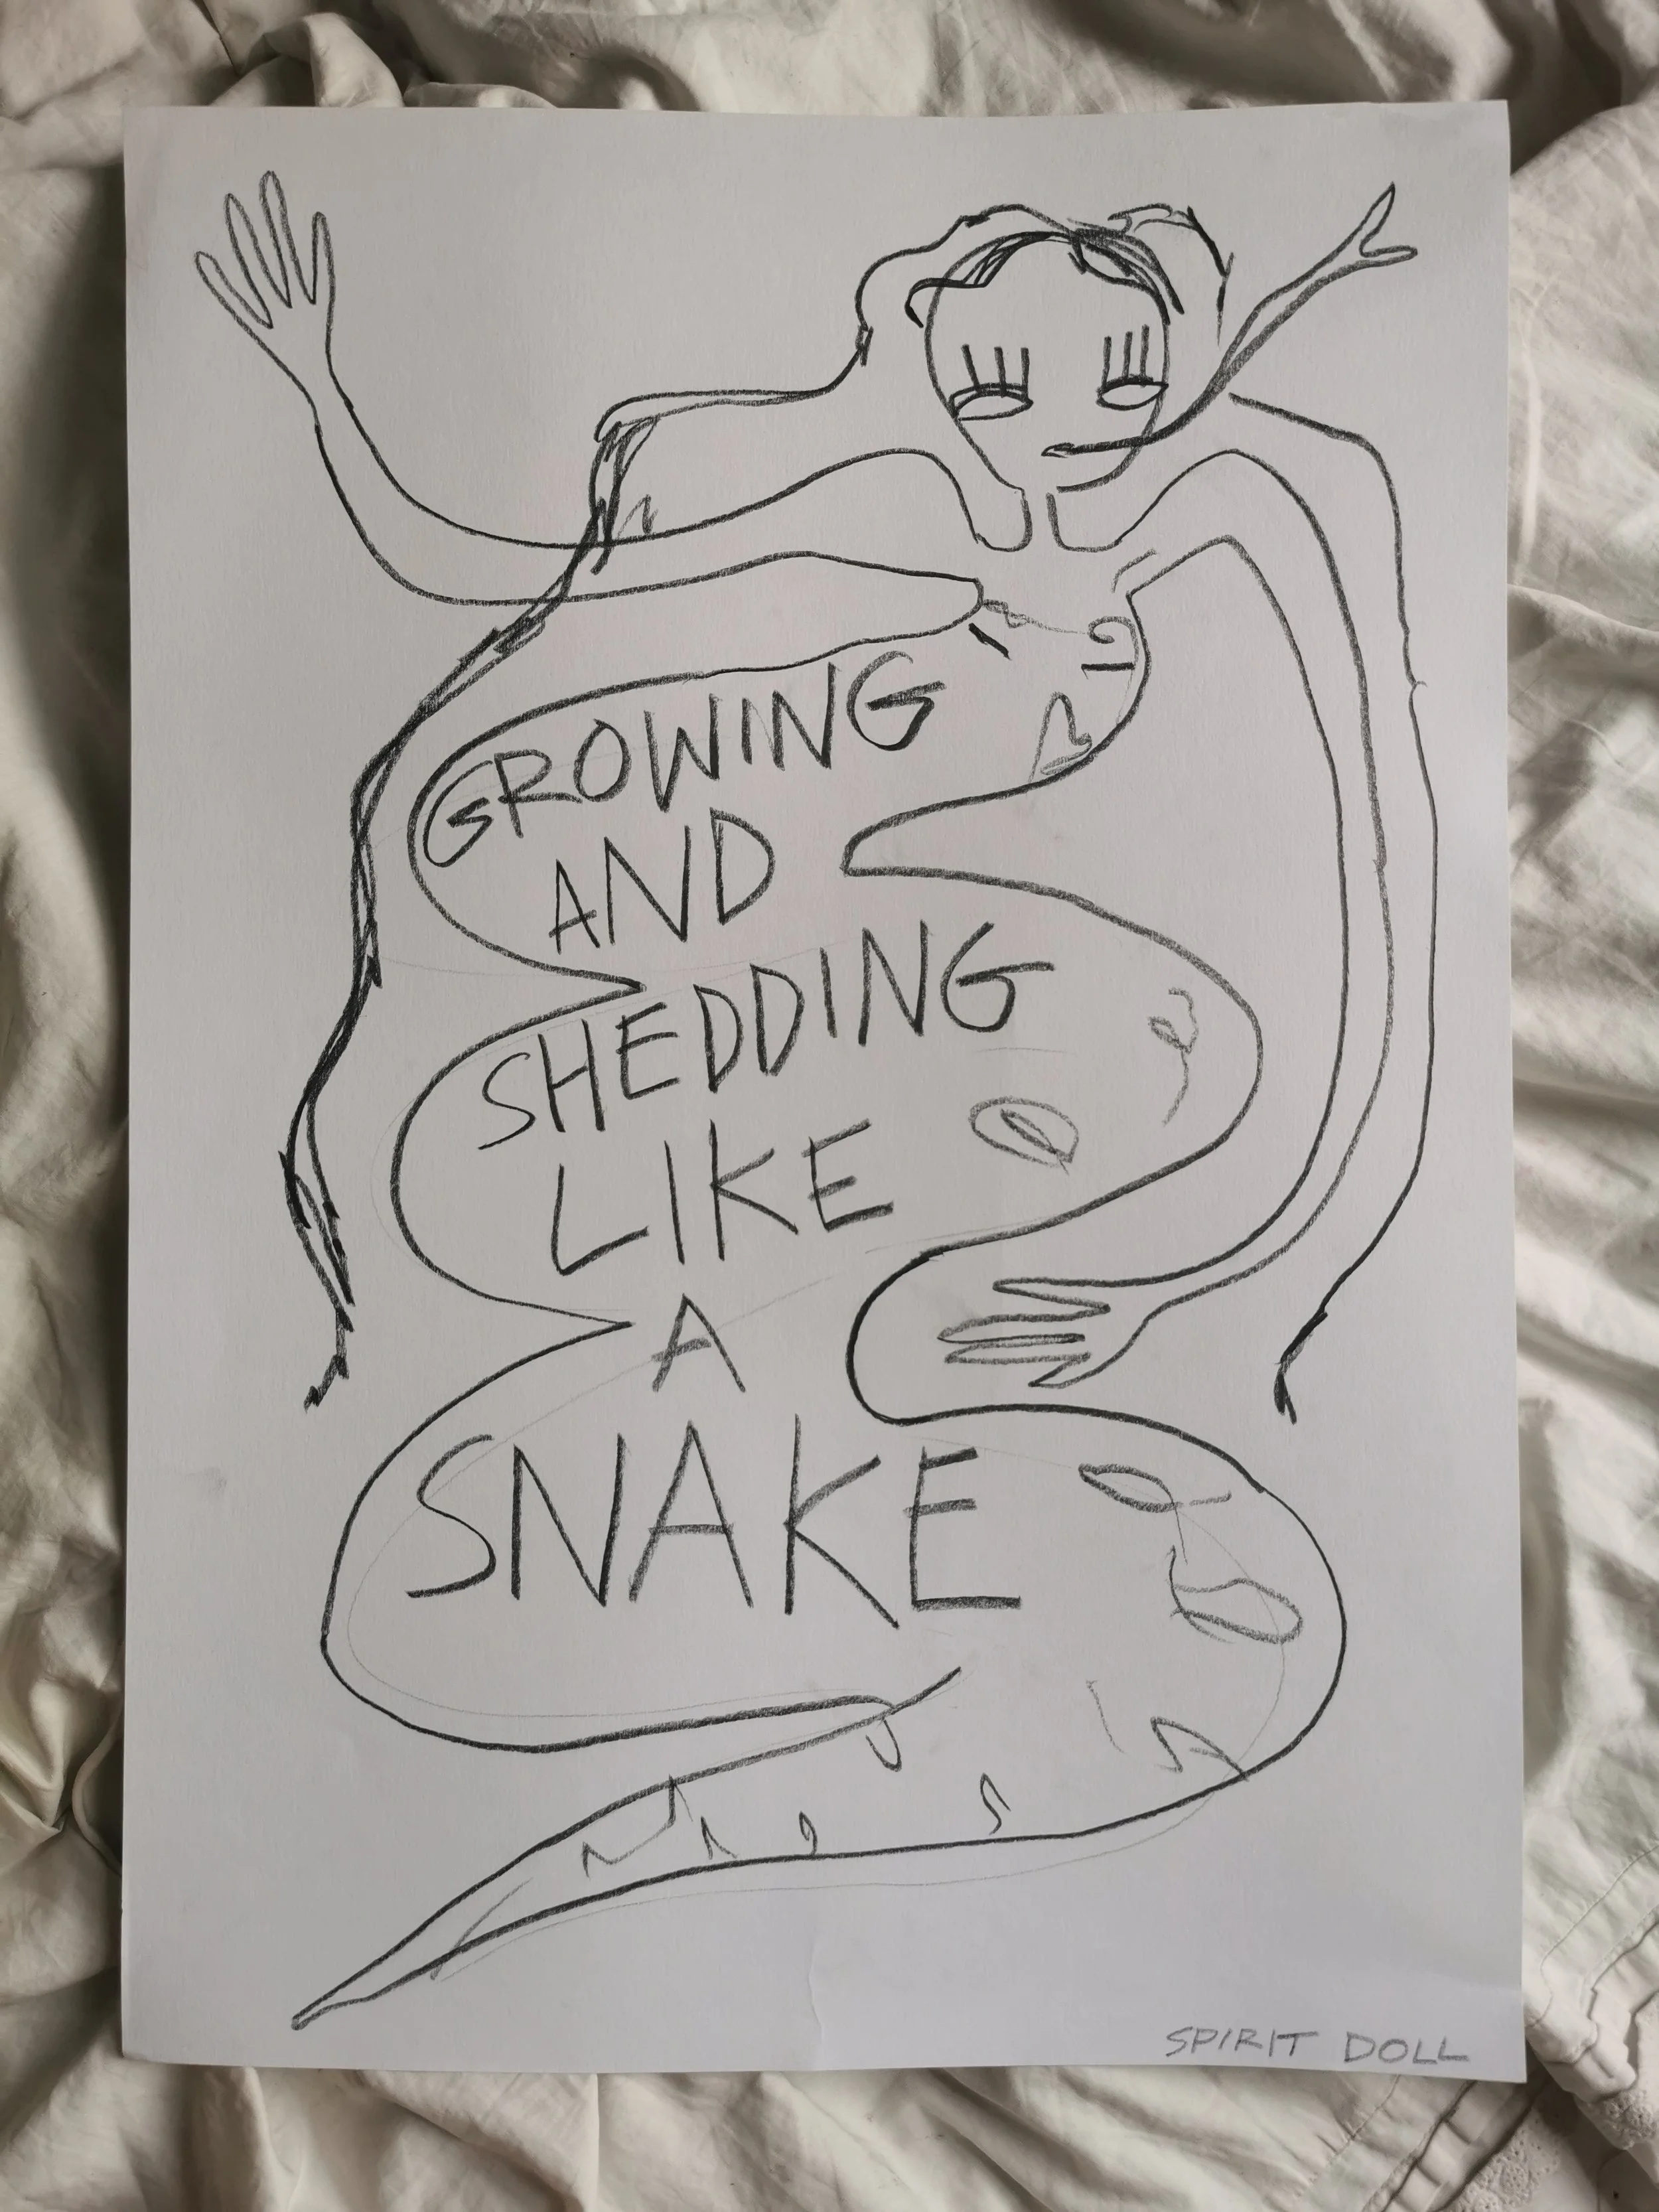 GROWING
AND
SHEDDING
LIKE
A
SNAKE
SPIRIT DOLL